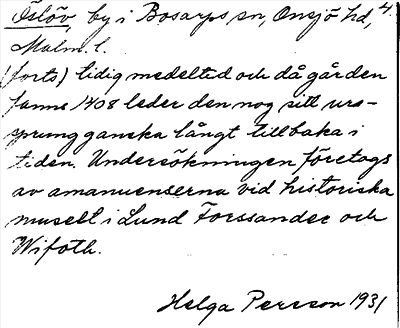 Öslöv, by i Bosarps sn, Onsjö hd, 4.
Malm. l.
(forts) tidig medeltid och då gården
fanns 1408 leder den nog sitt ur-
sprung ganska långt tillbaka i
tiden. Undersökningen företogs
av amanuenserna vid historiska
museet i Lund Forssander och
Wifoth.
Helga Persson 1931